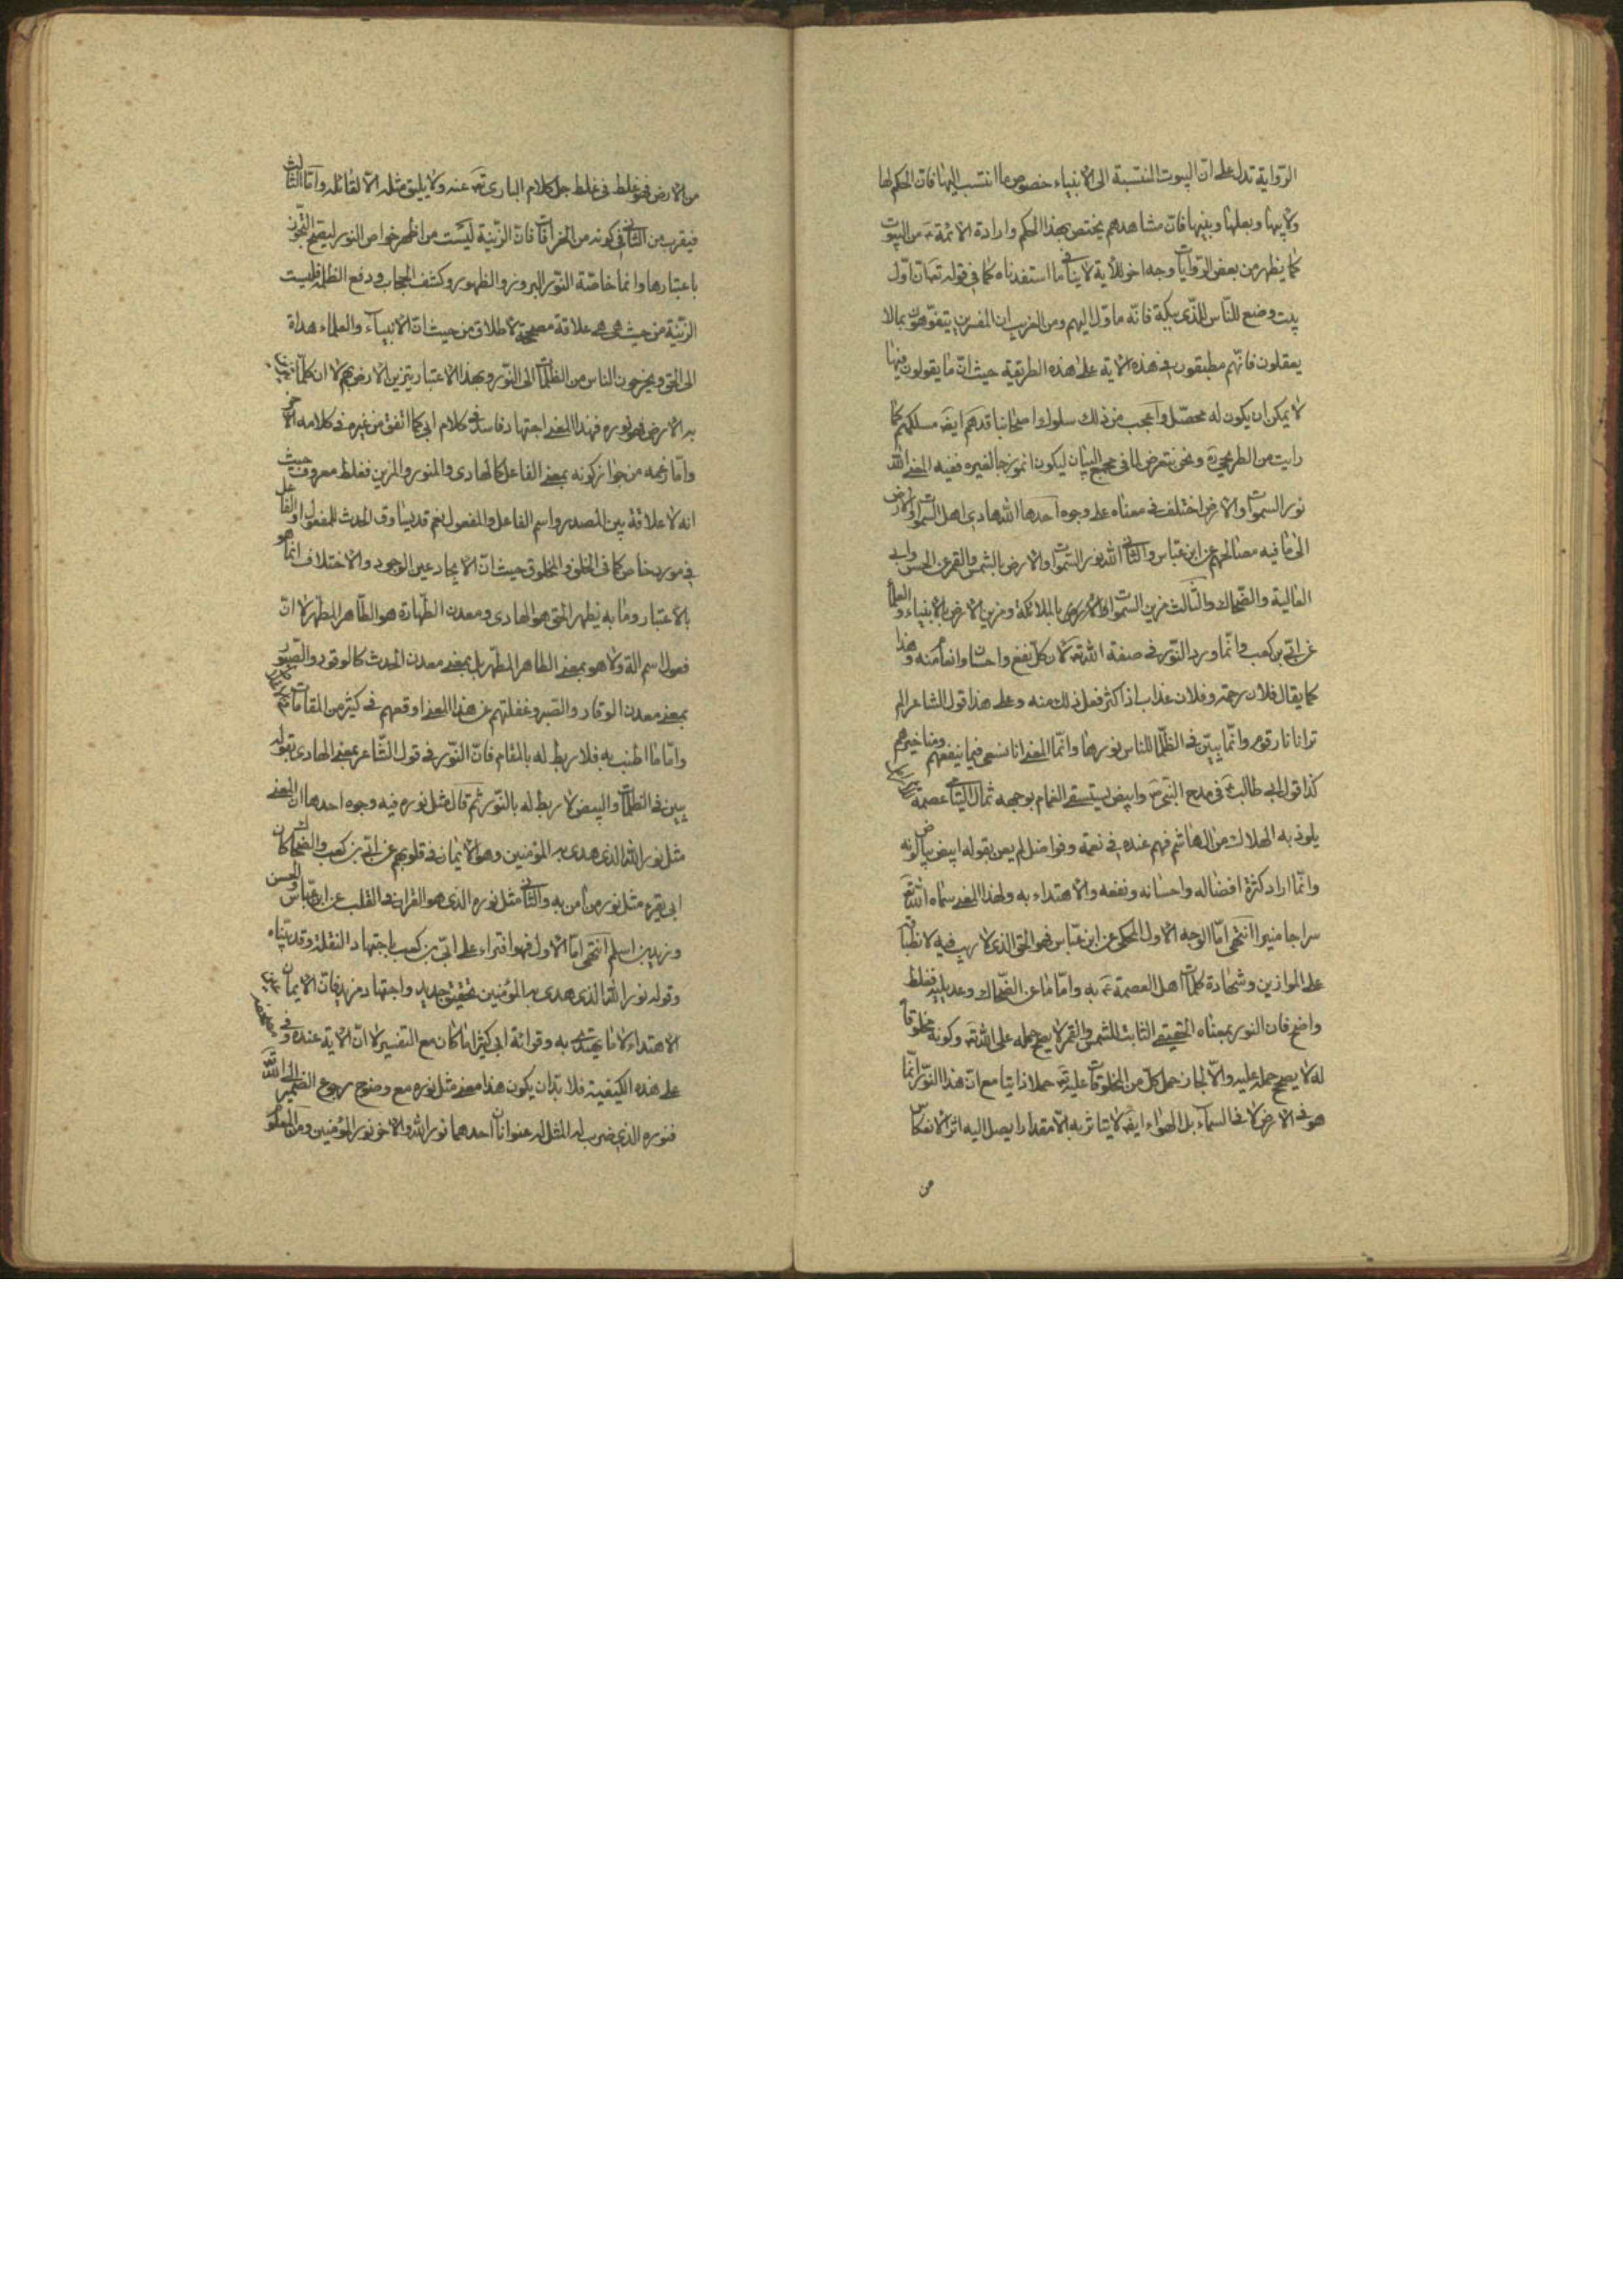 الرّواية تدل على انّ البيوت المنتسبة الى الانبياء خصوص ما انتسب اليها فانّ الحكم لها
ولابيها وبعلها وبنيها فانّ مشاهدهم يختص بهذا الحكم وارادة الائمة ع من البيوت
كما يظهر من بعض الرّوايات وجه اخر للآية لا ينافى ما استفدناه كما فى قوله تع انّ اوّل
بيت وضع للنّاس للّذى ببكّة فانّه ماوّل اليهم ومن الغريب ان المفسرين يتفوّهون بمالا
يعقلون فانّهم مطبقون فى هذه الاية على هذه الطريقة حيث انّ ما يقولون فيها
لا يمكن ان يكون له محصّل واعجب من ذلك سلوك اصحابنا قدهم ايضَ مسلكهم كما
رايت من الطريحى ره ونحن نتعرض لما فى مجمع البيان ليكون انموزجا لغيره ففيه المعنى الله
نور السموات والارض اختلف فى معناه على وجوه احدها الله هادى اهل السموات والارض
الى ما فيه مصالحهم عن ابن عبّاس والثانى الله نور السّموات والارض بالشمس والقمر عن الحسن وابى
العالية والضّحاك والثّالث مزين السموات بالملائكة ومزين الارض بالانبياء والعلماء
عن ابىّ بن كعب وانّما ورد النّور فى صفة الله تع لان كلّ نفع واحسان وانعام منه وهذا
كما يقال فلان رحمة وفلان عذاب اذا كثر فعل ذلك منه وعلى هذا قول الشاعر الم
ترانا نا رقوم وانّما يبيّن فى الظلّما للناس نورها وانّما المعنى انا نسعى فيما ينفعهم ومنا خيرهم
كذا قول ابى طالب ع فى مدح النبّى ص وابيض يستسقى الغمام بوجهه ثمال اليتامى عصمة
يلوذ به الهلاك من ال هاشم فهم عنده فى نعمة وفواضل لم يعن بقوله ابيض بياض لونه
وانّما اراد كثرة افضاله واحسانه ونفعه والاهتداء به ولهذا المعنى سمّاه الله تع
سراجا منيرا انتهى امّا الوجه الاول المحكى عن ابن عبّاس فهو الحق الذى لا ريب فيه لانطباقه
على الموازين وشهادة كلمات اهل العصمة ع به وامّا ما عن الضّحاك وعديليه فغلط
واضح فان النور بمعناه الحقيقى الثابت للشمس والقمر لا يصح حمله على الله تع وكونه مخلوقا
له لا يصحح حمله عليه والاّ لجاز حمل كلّ من المخلوقات عليه تع حملا ذاتيا مع انّ هذا النوّر انّما
هو فى الارض لا فى السماء بل الهواء ايضَ لا يتاثر به الاّ مقدارا يصل اليه اثر الانعكاس
من
من الارض فهو غلط فى غلط جل كلام البارى تع عنه ولا يليق مثله الاّ لقائله وامّا الثّالث
فيقرب من الثّانى فى كونه من الخرافات فانّ الزّينة ليست من اظهر خواص النور ليصحّ التّجوّز
باعتبارها وانما خاصّة النّور البروز والظهور وكشف الحجاب ودفع الظلمة فليست
الزّينة من حيث هى هى علاقة مصححة لاطلاق من حيث انّ الانبياء والعلماء هداة
الى الحق ويخرجون الناس من الظلمات الى النّور وبهذا الاعتبار يتزين الارض بهم لا ان كلّما
به الارض فهو نوره فهذا المعنى اجتهاد فاسد فى كلام ابى كما اتفق من غيره فى كلامه الاخر
وامّا زعمه من جواز كونه بمعنى الفاعل كالهادى والمنور والمزين فغلط معروف حيث
انه لا علاقة بين المصدر واسم الفاعل والمفعول نعم قد يساوق الحدث للمفعول او الفاعل
فى مورد خاص كما فى الخلق والمخلوق حيث انّ الايجاد عين الوجود والاختلاف انّما هو
بالاعتبار وما به يظهر الحق هو الهادى ومعدن الطّهارة هو الطّاهر المطّهر لا انّ
فعول اسم الة ولا هو بمعنى الطاهر المطهّر بل بمعنى معدن الحدث كالوقود والصبور
بمعنى معدن الوقاد والصبر وغفلتهم عن هذا المعنى اوقعهم فى كثير من المقامات
وامّا ما اطنب به فلا ربط له بالمقام فانّ النّور فى قول الشّاعر بمعنى الهادى بقوله
يبين فى الظلمات والبيض لا ربط له بالنّور ثم قال مثل نوره فيه وجوه احدها انّ المعنى
مثل نور الله الذى هدى به المؤمنين وهو الايمان فى قلوبهم عن ابىّ بن كعب والضحّاك كان
ابى يقرء مثل نور من امن به والثّانى مثل نوره الذى هو القران فى القلب عن ابن عبّاس والحسن
وزيد بن اسلم انتهى امّا الاول فهو افتراء على ابىّ بن كعب باجتهاد النقلة وقد بيّناه
وقوله نور الله الذى هدى به المؤمنين تحقيق جديد واجتهاد مزيد فانّ الايمان
الاهتداء لا ما يهتدى به وقرائة ابى كثيرا ما كان مع التفسير لا انّ الاية عنده
على هذه الكيفية فلا بدّ ان يكون هذا معنى مثل نوره مع وضوح رجوع الضّمير الى الله
فنوره الذى ضرب له المثل له عنوانان احدهما نور الله والاخر نور المؤمنين ومن المعلوم